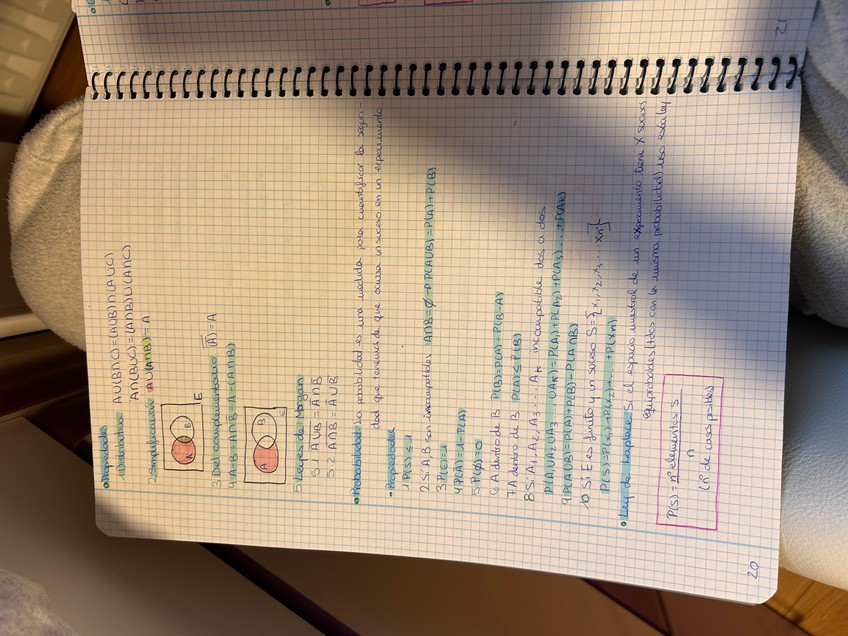 • Propiedades
1 Distributiva A∪(B∩C)=(A∪B)∩(A∪C)
A∩(B∪C)=(A∩B)∪(A∩C)
2 Simplificación A∪(A∩B)=A
A B E
3 Del complementario (A̅)̅=A
4 A-B=A∩B̅=A-(A∩B)
A B E
5 Leyes de Morgan
5.1 A̅∪̅B̅=A̅∩B̅
5.2 A̅∩̅B̅=A̅∪B̅
• Probabilidad: la probabilidad es una medida para cuantificar la seguri-
dad que tenemos de que ocurra un suceso en un experimento
- Propiedades
1 P(S)≤1
2 Si A, B son incompatibles A∩B=∅→P(A∪B)=P(A)+P(B)
3 P(E)=1
4 P(A̅)=1-P(A)
5 P(∅)=0
6 A dentro de B P(B)=P(A)+P(B-A)
7 A dentro de B P(A)≤P(B)
8 Si A₁, A₂, A₃... Aₖ incompatibles dos a dos
P(A₁∪A₂∪A₃...∪Aₖ)=P(A₁)+P(A₂)+P(A₃)...+P(Aₖ)
9 P(A∪B)=P(A)+P(B)-P(A∩B)
10 Si E es finito y un suceso S={x₁,x₂,x₃...xn}
P(S)=P(x₁)+P(x₂)+...+P(xn)
• Ley de Laplace: Si el espacio muestral de un experimento tiene X sucesos
equiprobables (todos con la misma probabilidad) uso esta ley
P(S)=nº elementos S
n
(nº de casos posibles)
20
21